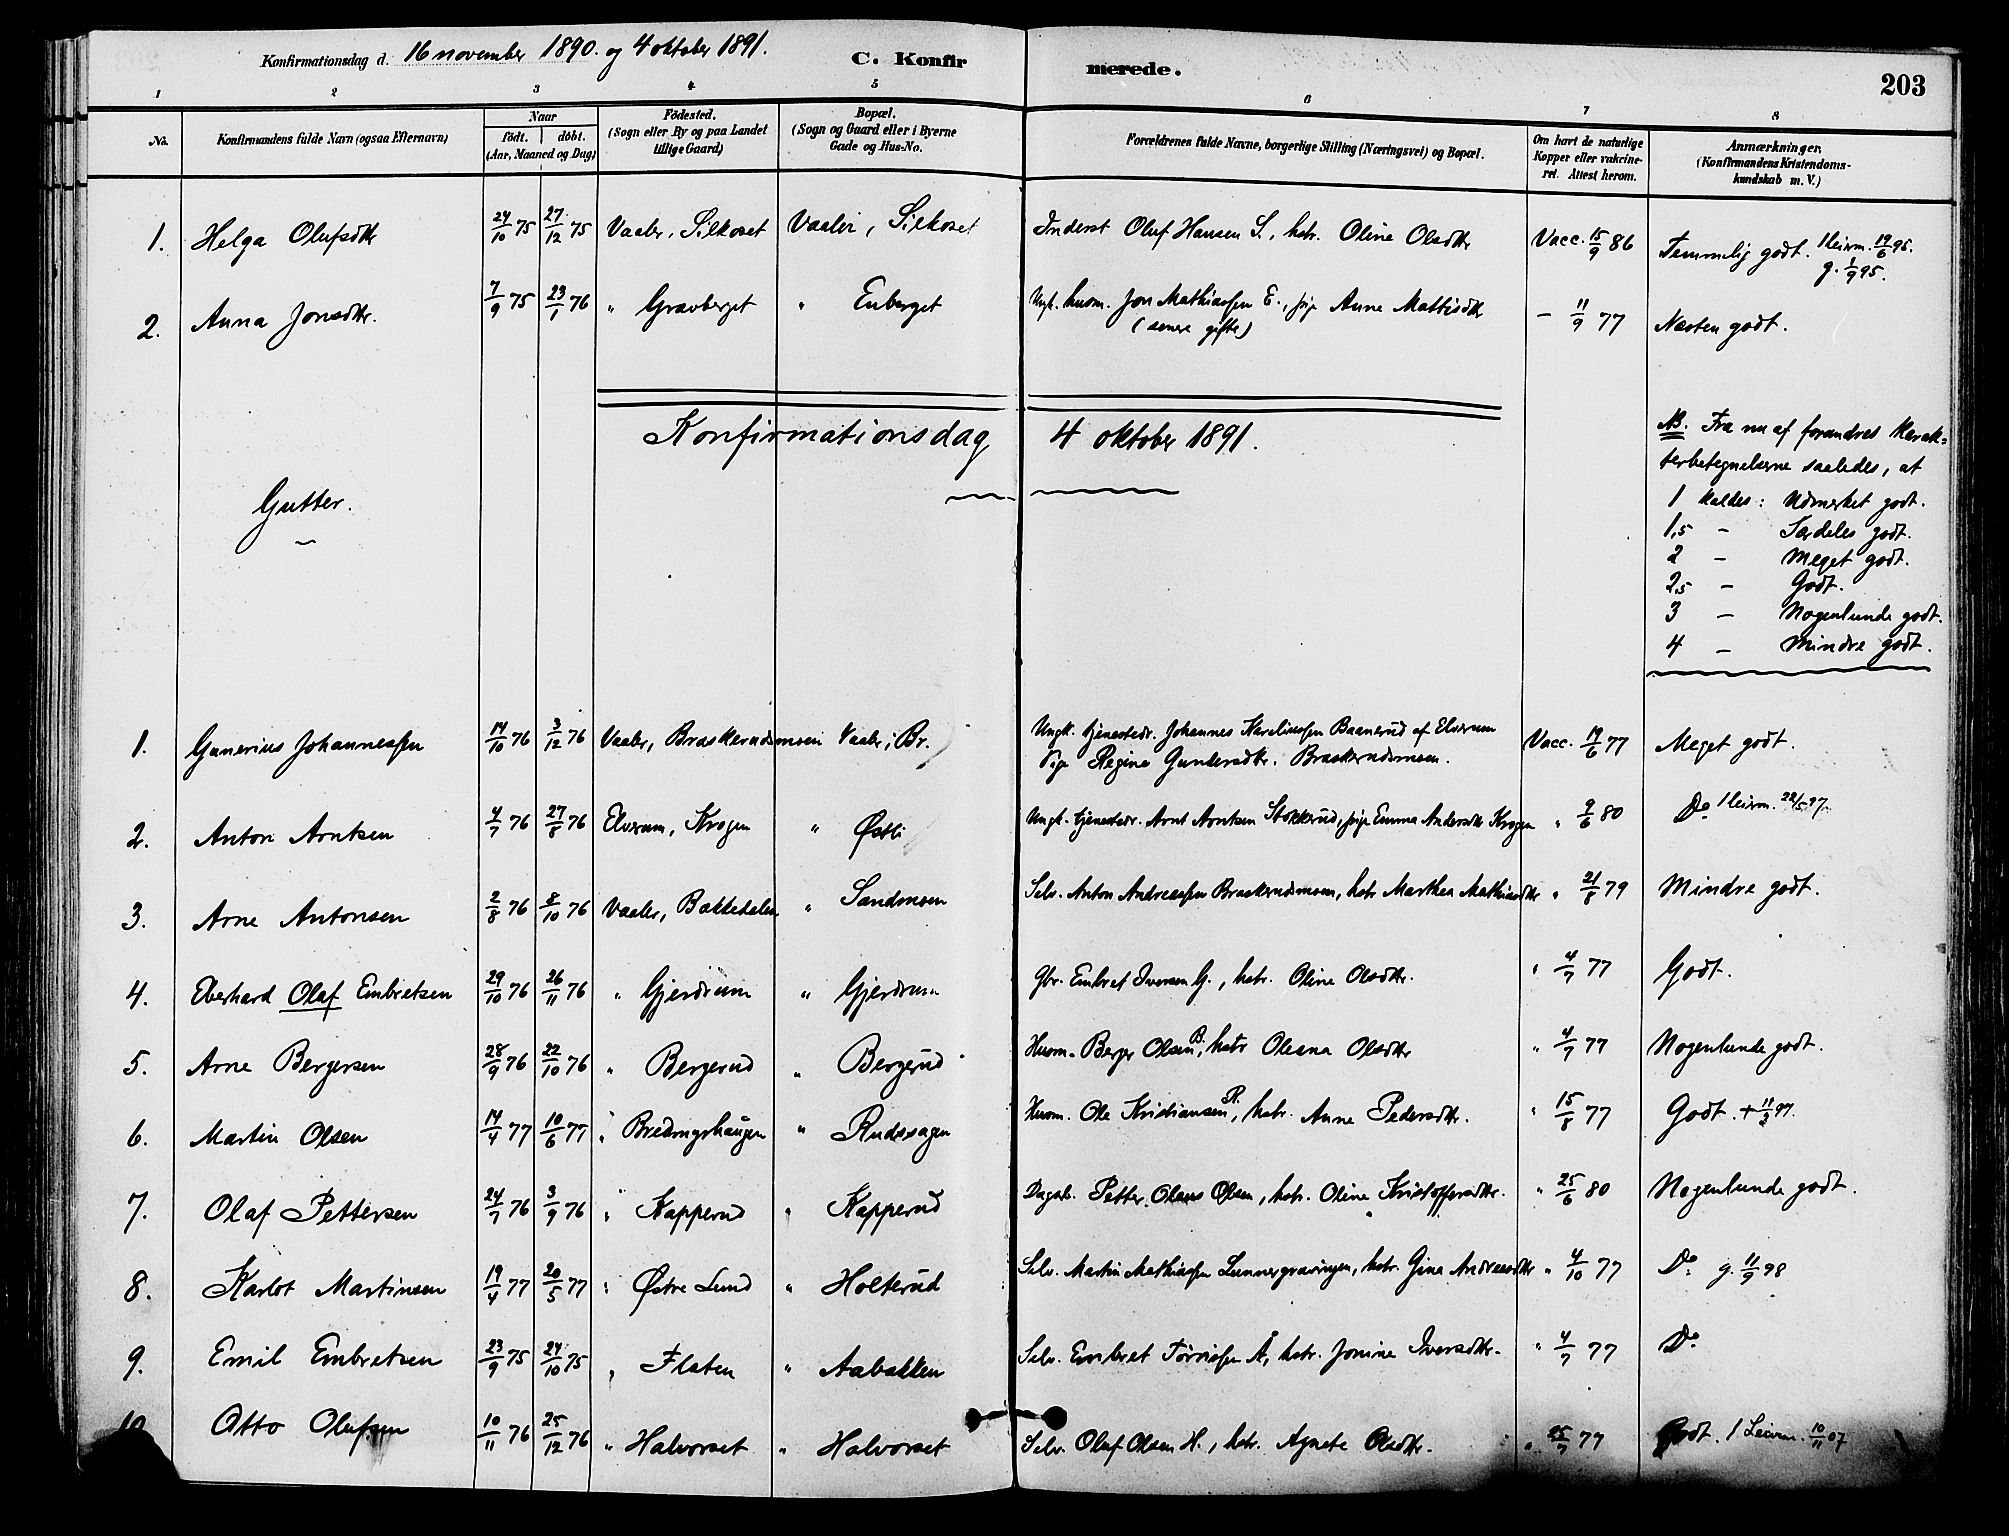 Konfirmationsdag d. 16 november 1890. og 4 oktober 1891. C. Konfirmerede. 203
1 2 3 4 5 6 7 8
No. Konfirmandens fulde Navn (ogsaa Efternavn) Naar födt. döbt. (Aar, Maaned og Dag) Födested. (Sogn eller By og paa Landet tillige Gaard) Bopæl. (Sogn og Gaard eller i Byerne Gade og Hus-No. Forældrenes fulde Navne, borgerlige Stilling (Næringsvei) og Bopæl. Om havt de naturlige Kopper eller vakcineret. Attest herom. Anmærkninger. (Konfirmandens Kristendomskundskab m. V.)
1. Helga Olufsdtr 24/10 75 27/12 75 Vaaler, Silkoset Vaaler, Silkoset Inderst Oluf Hansen S., hstr. Oline Olsdtr Vacc. 15/9 86 Temmelig godt. 1 leirm. 19/6 95. g. 1/9 95.
2. Anna Jonsdtr. 7/9 75 23/1 76 " Gravberget " Enberget Ungk. husm. Jon Mathiassen E., pige Anne Mattisdtr (senere gifte) - 11/9 77 Næsten godt.
Konfirmationsdag 4 oktober 1891.
Gutter.
NB. Fra nu af forandres karak=
terbetegnelserne saaledes, at
1 kaldes: Udmerket godt.
1,5 - Særdeles godt.
2 - Meget godt.
2,5 - Godt.
3 - Nogenlunde godt.
4 - Mindre godt.
1. Gunerius Johannessen 14/10 76 3/12 76 Vaaler, Braskerudmoen Vaaler, Br. Ungk. tjenestedr. Johannes Karelinssen Baanerud af Elverum Pige Regine Gundersdtr. Braskerudmoen. Vacc. 19/6 77 Meget godt.
2. Anton Arntsen 4/7 76 27/8 76 Elverum, Krogen " Østli Ungk. tjenestedr. Arnt Arntsen Stokkerud, pige Emma Andersdtr Krogen " 9/6 80 Do 1 leirm. 22/5 97.
3. Arne Antonsen 2/8 76 8/10 76 Vaaler, Bakkedalen " Sandmoen Selv. Anton Andreassen Braskerudmoen, hstr Marthea Mathiasdtr " 21/8 79 Mindre godt.
4. Eberhard Olaf Embretsen 29/10 76 26/11 76 " Gjerdrum " Gjerdrum Gbr. Embret Iversen G., hstr. Oline Olsdtr. " 4/7 77 Godt.
5. Arne Bergersen 28/9 76 22/10 76 " Bergerud " Bergerud Husm. Berger Olsen B., hstr Oleana Olsdtr " 4/7 77 Nogenlunde godt.
6. Martin Olsen 14/4 77 10/6 77 " Bredmyrhaugen " Rudssagen Husm. Ole Kristiansen R., hstr. Anne Pedersdtr. " 15/8 77 Godt. + 11/3 97.
7. Olaf Pettersen 24/7 76 3/9 76 " Kapperud " Kapperud Dagsk. Petter Olaus Olsen, hstr. Oline Kristoffersdtr. " 25/6 80 Nogenlunde godt.
8. Karlot Martinsen 19/4 77 20/5 77 " Østre Lund " Holterud Selv. Martin Mathiassen Lunnergravingen, hstr. Gina Andreasdtr " 4/10 77 Do g. 11/9 98
9. Emil Embretsen 23/9 75 24/10 75 " Flaten " Aabakken Selv. Embret Törrissen Å, hstr. Jonine Iversdtr. " 4/7 77 Do
10 Otto Olufsen 10/11 76 25/12 76 " Halvorset " Halvorset Selv. Oluf Olsen H., hstr. Agnete Olsdtr. " 25/7 77 Godt. 1 Leirm. 10/11 07